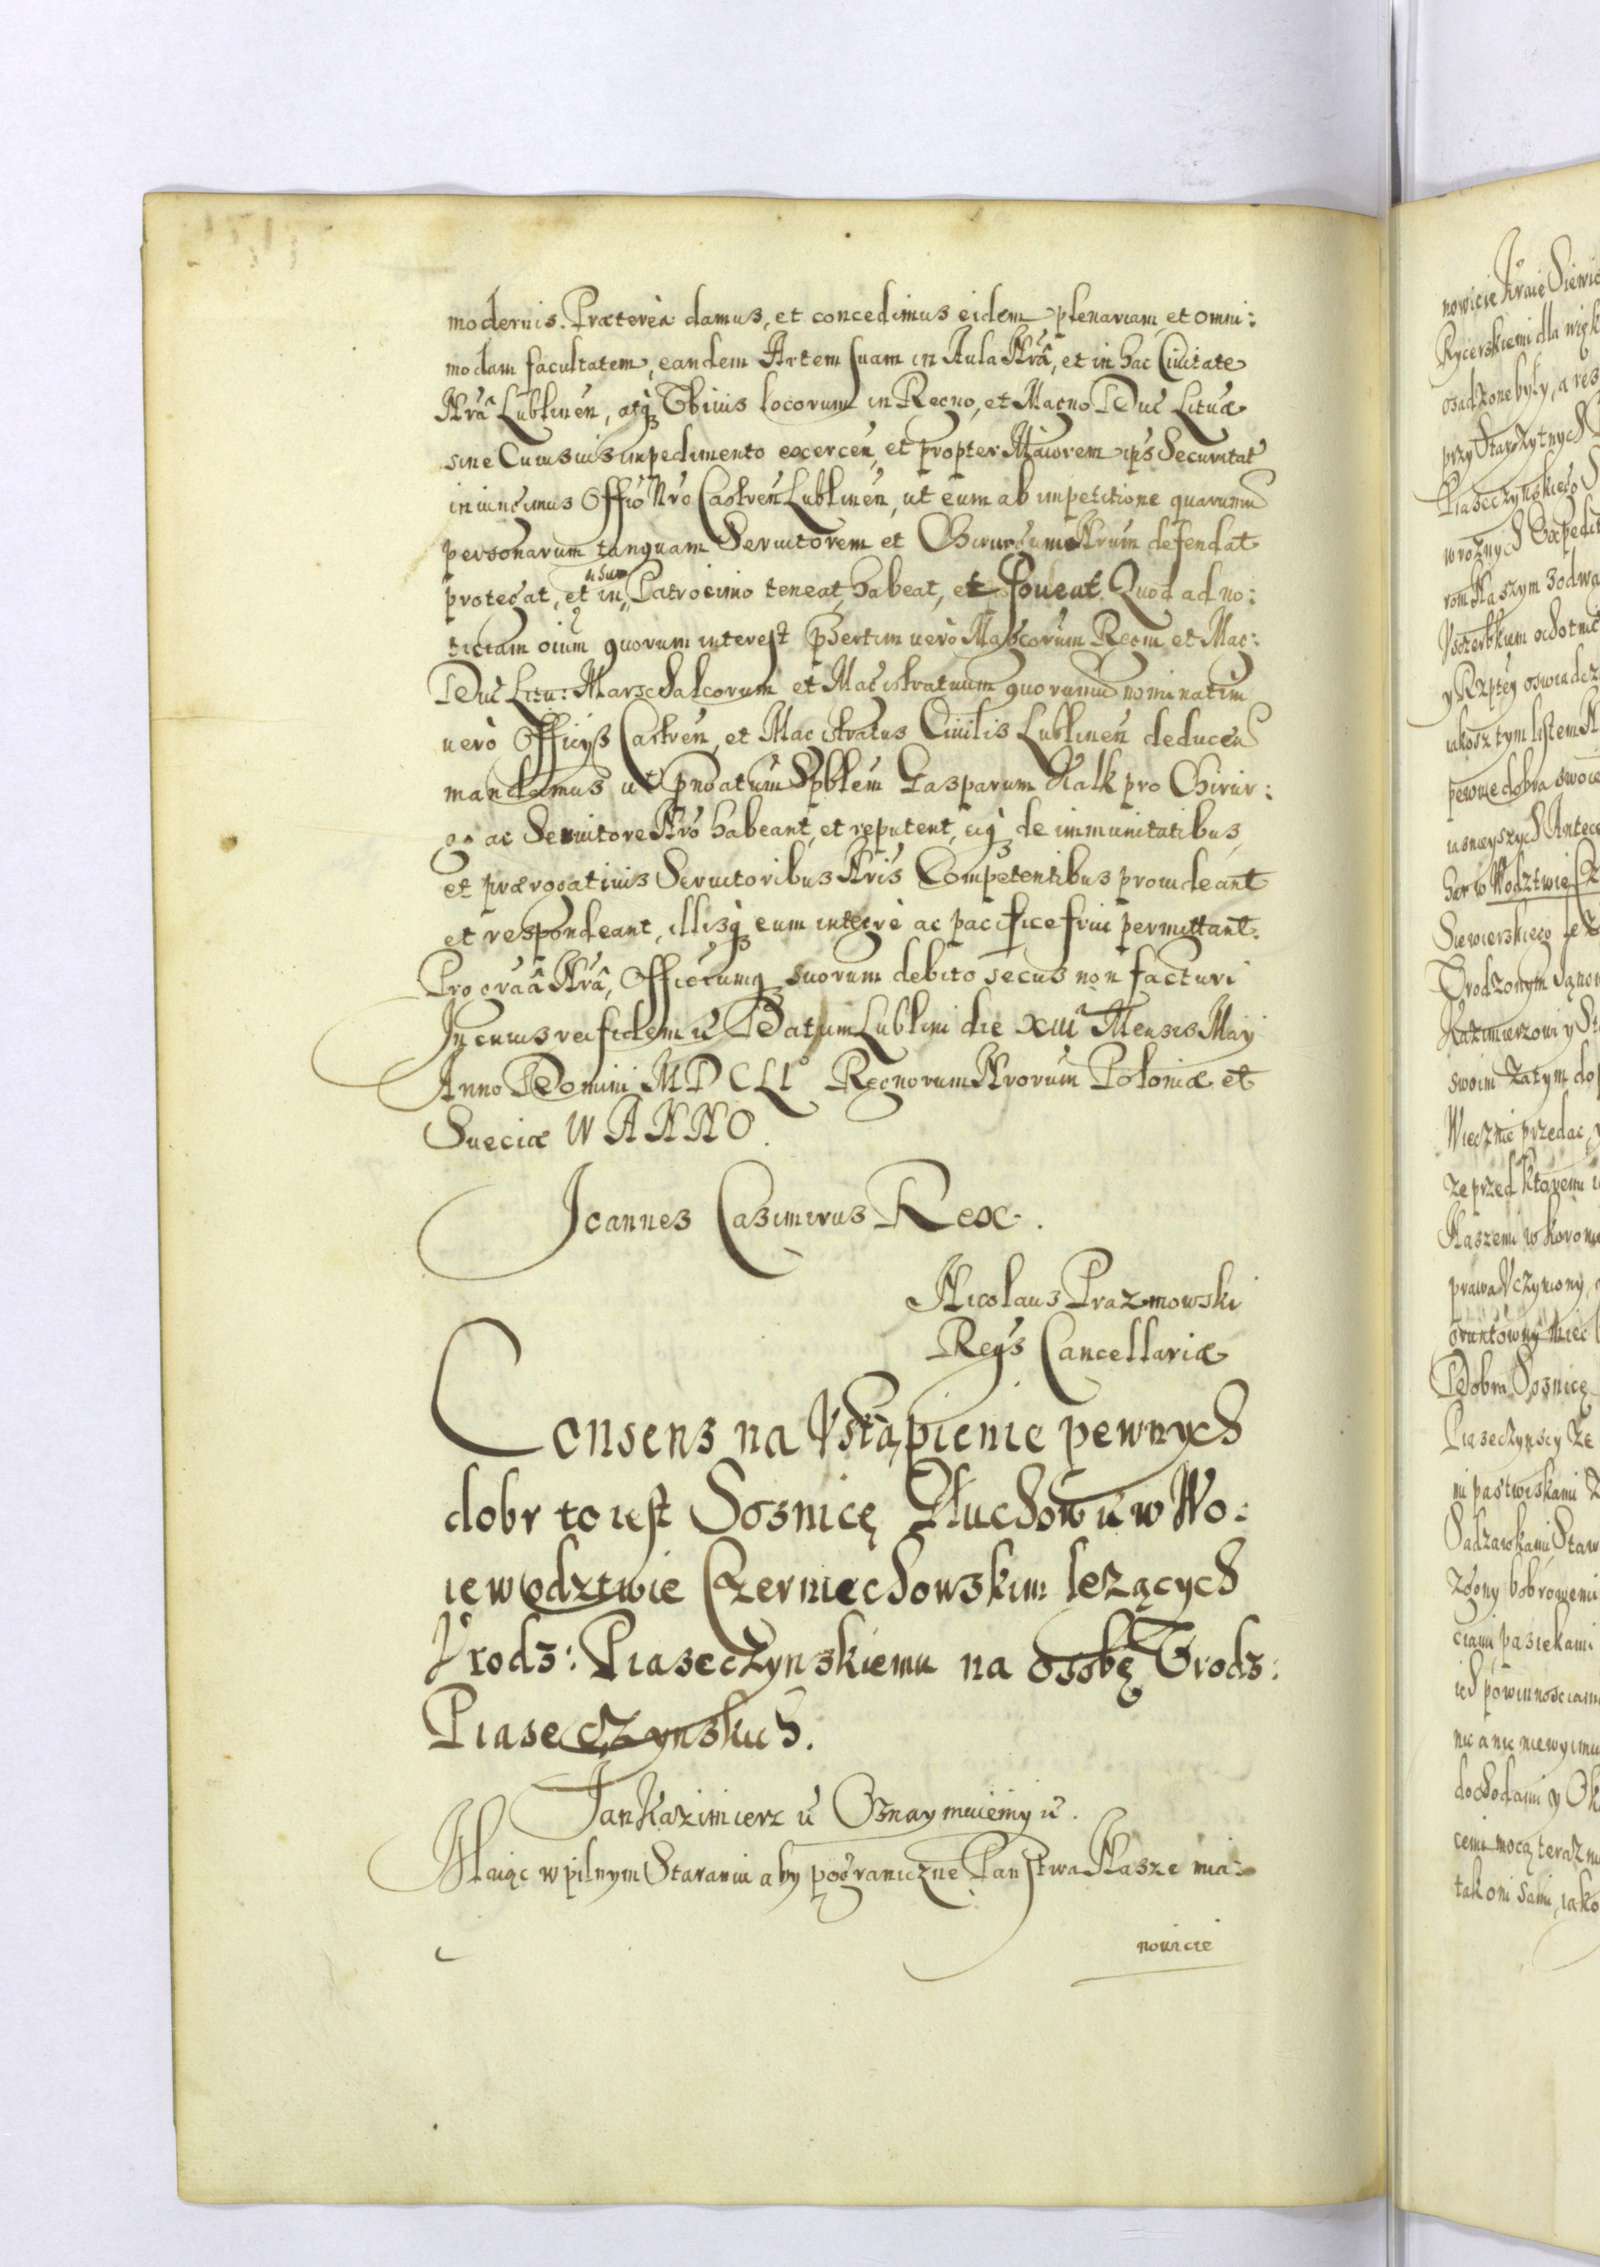 modernis. Prætereà damus, et concedimus eidem plenariam, et omni:
modam facultatem, eandem Artem suam in Aula Nrâ, et in hac Ciuitate
Nrâ Lublinen, atq Vbiuis locorum in Regno, et Magno Duc Lituæ
sine Cuiusuis impedimento excercen, et propter Maiorem ips Securitat
iniungimus Offio Nro Castren Lublinen, ut eum ab impetitione quarumuis
personarum tanquam Seruitorem et Chirurgum Nrum defendat
protegat, et in usum Patrocinio teneat, habeat, et foueat. Quod ad no:
titiam oium quorum interest psertim uerò Magcorum Regni et Mag:
Duc Litu: Marschalcorum et Magistratuum quorumuis nominatim
uerò Officÿs Castren, et Magistratus Ciuilis Lublinen deducen
mandamus ut pnoatum Spblem Gasparum Kalk pro Chirur:
go ac Seruitore Nro habeant, et reputent, eiq de immunitatibus,
et prærogatiuis Seruitoribus Nris Competentibus prouideant
et respondeant, illisq eum integrè ac pacifice frui permittant.
Pro graâ Nrâ, Officiorumq suorum debito secus non facturi
In cuius rei fidem ü Datum Lublini die XIII Mensis Maÿ
Anno Domini MDCLI° Regnorum Nrorum Poloniæ et
Sueciæ III ANNO.
Joannes Casimirus Rex.
Nicolaus Prazmowski
Regs Cancellariæ
Consens na Vstąpienie pewnych
dobr to iest Sosnicę Kluchow ü w Wo:
iewodztwie Czerniechowskim leżących
Vrodz: Piaseczynskiemu na osobę Vrodz:
Piaseczynskich.
Jan Kazimierz ü Oznaymuiemy ü.
Maiąc w pilnym Staraniu aby pograniczne Panstwa Nasze mia:
nowicie
nowicie Kraie Siewie
Rycerskiemi dla więk
osadzone były, a res
przy Starożytnych
Piaseczynskiego
w rożnych Expedit
rom Naszym z odwa
Vszczerbkum ochotnie
y Rzptey oswiadcz
iakosz tym listem N
pewne dobra swoie
iasnieyszych Antece
har w Wodztwie Cz
Siewierskiego leż
Vrodzonym Janow
Kazimierzowi y St
swoim zatym do
Wiecznie przedac, y
że przed Ktoremi
Naszemi w Koronie
prawa Vczynony,
gruntowny miec
Dobra Sosnicę
Piaseczynscy ze
mi pastwiskami z
Sadzawkami, Staw
zgony bobrowemi
ciami, pasiekami
ich powinnosciami
nic a nic niewyimu
dochodami y Ok
cemi mocą teraz ni
tak oni sami, iako